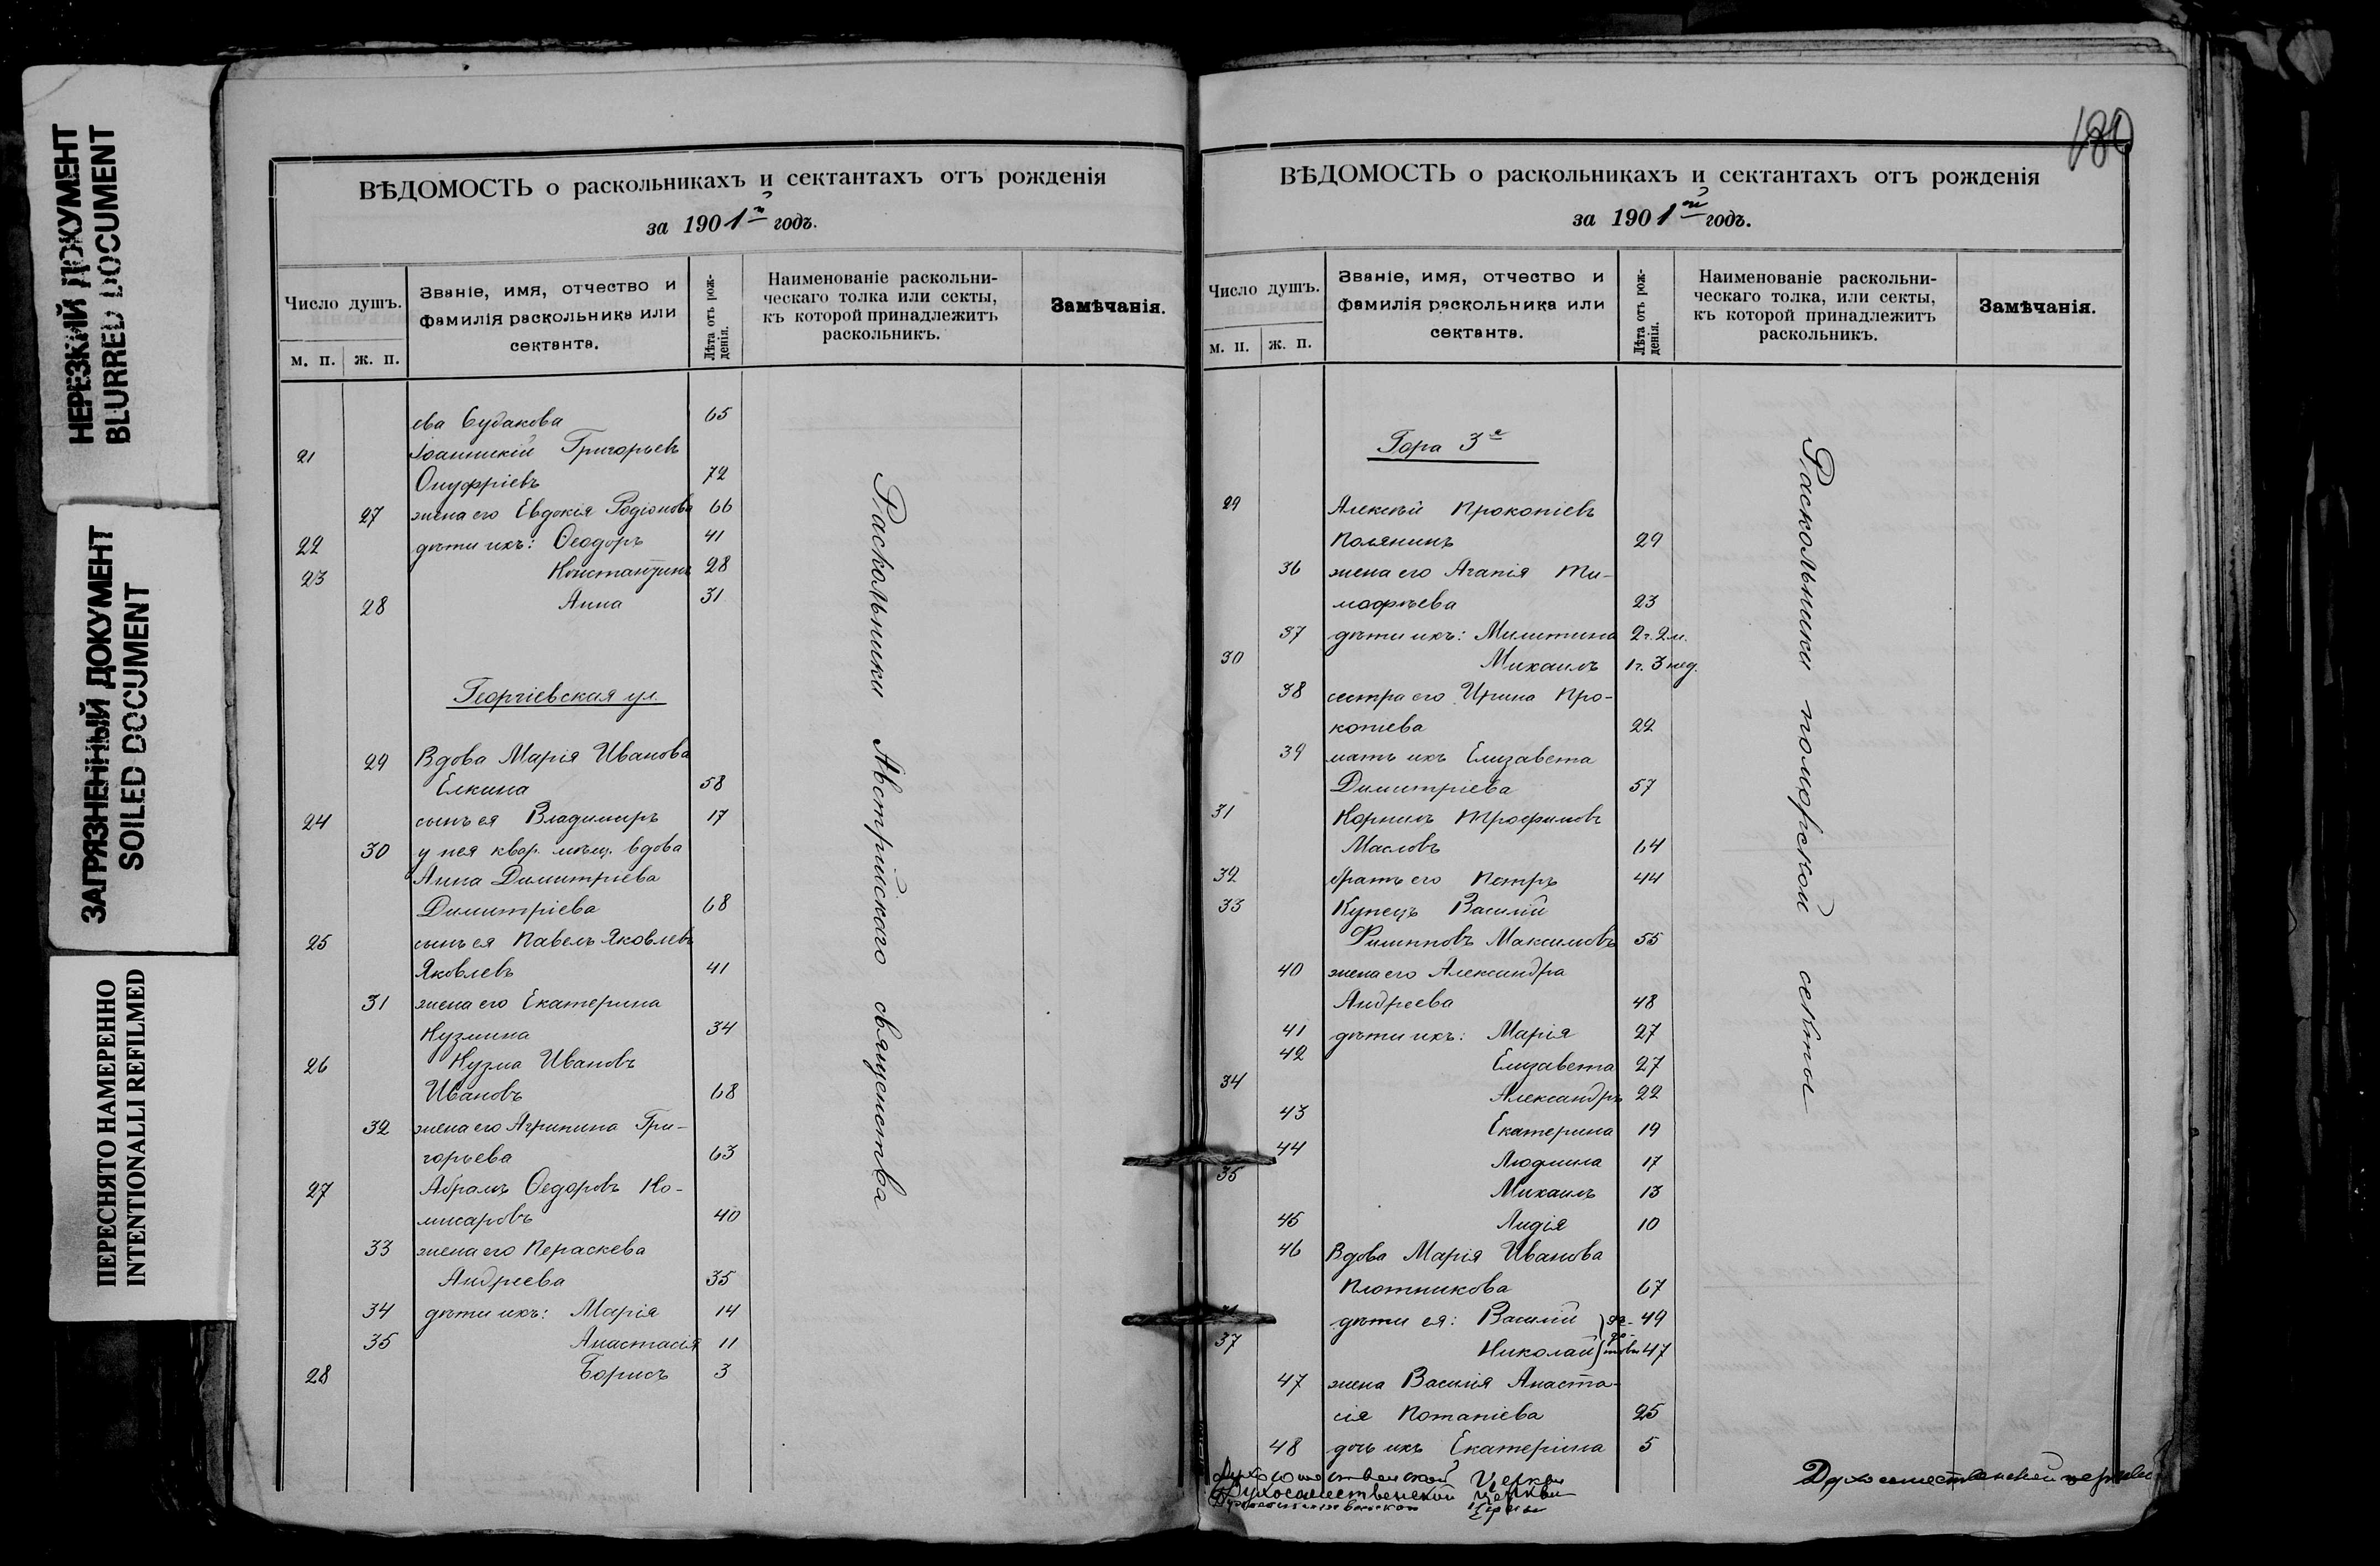 НЕРЕЗКИЙ ДОКУМЕНТ
BLURRED DOCUMENT
ЗАГРЯЗНЕННЫЙ ДОКУМЕНТ
SOILED DOCUMENT
ПЕРЕСНЯТО НАМЕРЕННО
INTENTIONALLI REFILMED
ВѢДОМОСТЬ о раскольникахъ и сектантахъ отъ рожденія
за 1901й годъ.
Число душъ.
м. п. ж. п.
Званіе, имя, отчество и
фамилія раскольника или
сектанта.
Лѣта отъ рож-
денія.
Наименованіе раскольни-
ческаго толка или секты,
къ которой принадлежитъ
раскольникъ.
Замѣчанія.
ева Судакова 65
21 Іоанникій Григорьевъ
Онуфріевъ 72
27 жена его Евдокія Родіонова 66
22 дѣти ихъ: Ѳеодоръ 41
23 Константинъ 28
28 Анна 31
Георгіевская ул.
29 Вдова Марія Иванова
Елкина 58
24 сынъ ея Владимиръ 17
30 у нея квар. мѣщ. вдова
Анна Димитріева
Димитріева 68
25 сынъ ея Павелъ Яковлевъ
Яковлевъ 41
31 жена его Екатерина
Кузмина 34
26 Кузма Ивановъ
Ивановъ 68
32 жена его Агрипина Гри-
горьева 63
27 Абрамъ Ѳедоровъ Ко-
мисаровъ 40
33 жена его Пераскева
Андреева 35
34 дѣти ихъ: Марія 14
35 Анастасія 11
28 Борисъ 3
Раскольники Австрійскаго священства
180
ВѢДОМОСТЬ о раскольникахъ и сектантахъ отъ рожденія
за 1901й годъ.
Число душъ.
м. п. ж. п.
Званіе, имя, отчество и
фамилія раскольника или
сектанта.
Лѣта отъ рож-
денія.
Наименованіе раскольни-
ческаго толка, или секты,
къ которой принадлежитъ
раскольникъ.
Замѣчанія.
Гора 3я
29 Алексѣй Прокопіевъ
Полянинъ 29
36 жена его Агапія Ти-
мофѣева 23
37 дѣти ихъ: Милитина 2г. 2м.
30 Михаилъ 1г. 3 нед.
38 сестра его Ирина Про-
копіева 22
39 мать ихъ Елизавета
Димитріева 57
31 Корнилъ Трофимовъ
Масловъ 64
32 братъ его Петръ 44
33 Купецъ Василій
Филипповъ Максимовъ 55
40 жена его Александра
Андреева 48
41 дѣти ихъ: Марія 27
42 Елизавета 27
34 Александръ 22
43 Екатерина 19
44 Людмила 17
35 Михаилъ 13
45 Лидія 10
46 Вдова Марія Иванова
Плотникова 67
дѣти ея: Василій 49
37 Николай 47
47 жена Василія Анаста-
сія Потапіева 25
48 дочь ихъ Екатерина 5
Раскольники поморской секты
Духосошественской Церкви
Духосошественской церкви
Духосошественской Церкви
Духосошественской церкви